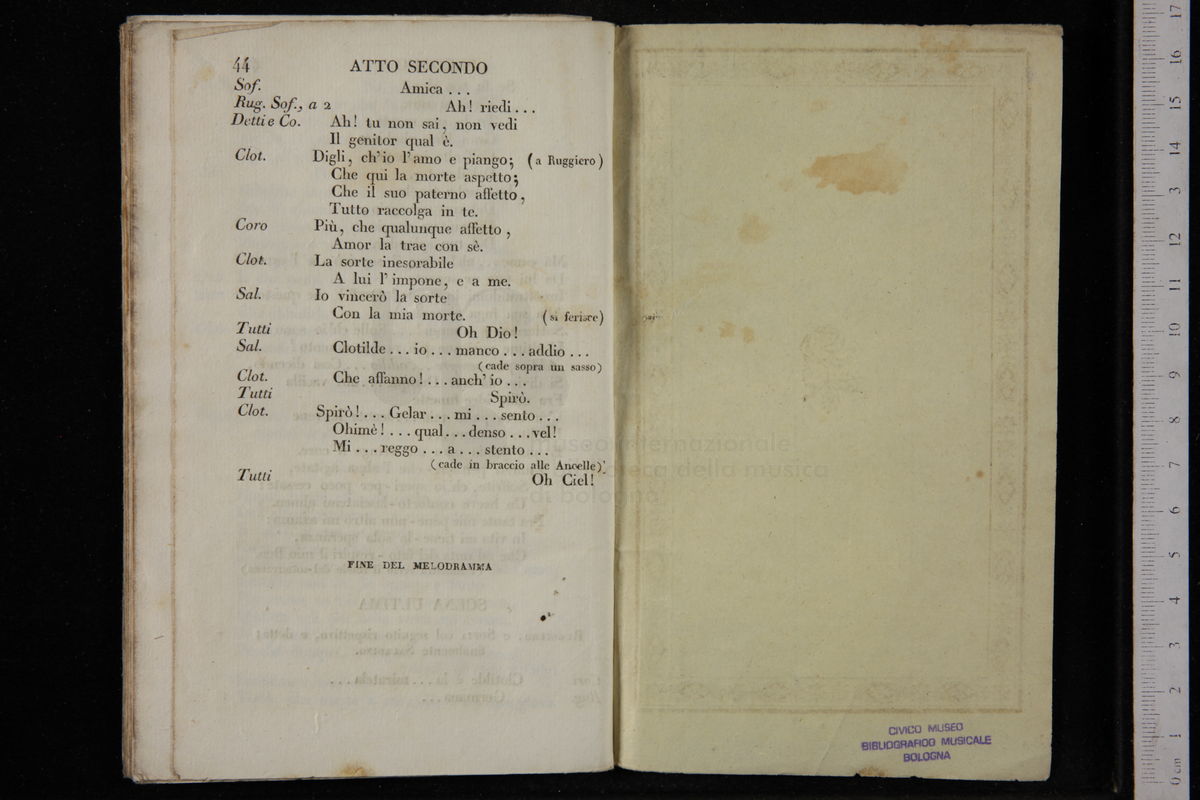 44 ATTO SECONDO
Sof. Amica . . .
Rug. Sof., a 2 Ah! riedi . . .
Detti e Co. Ah! tu non sai, non vedi
Il genitor qual è.
Clot. Digli, ch'io l'amo e piango; (a Ruggiero)
Che qui la morte aspetto;
Che il suo paterno affetto,
Tutto raccolga in te.
Coro Più, che qualunque affetto,
Amor la trae con sè.
Clot. La sorte inesorabile
A lui l'impone, e a me.
Sal. Io vincerò la sorte
Con la mia morte. (si ferisce)
Tutti Oh Dio!
Sal. Clotilde . . . io . . . manco . . . addio . . .
(cade sopra un sasso)
Clot. Che affanno! . . . anch' io . . .
Tutti Spirò.
Clot. Spirò! . . . Gelar . . . mi . . . sento . . .
Ohimè! . . . qual . . . denso . . . vel!
Mi . . . reggo . . . a . . . stento . . .
(cade in braccio alle Ancelle)
Tutti Oh Ciel!
FINE DEL MELODRAMMA
SCENA ULTIMA
museo internazionale
biblioteca della musica
di bologna
CIVICO MUSEO
BIBLIOGRAFICO MUSICALE
BOLOGNA
0 cm 1 2 3 4 5 6 7 8 9 10 11 12 13 14 15 16 17